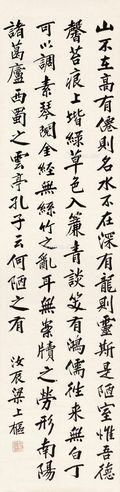 山不在高有僊則名水不在深有龍則靈斯是陋室惟吾德
馨苔痕上堦綠草色入簾青談笑有鴻儒往来無白丁
可以調素琴閱金經無絲竹之亂耳無案牘之勞形南陽
諸葛廬西蜀之雲亭孔子云何陋之有 汝辰梁上樞